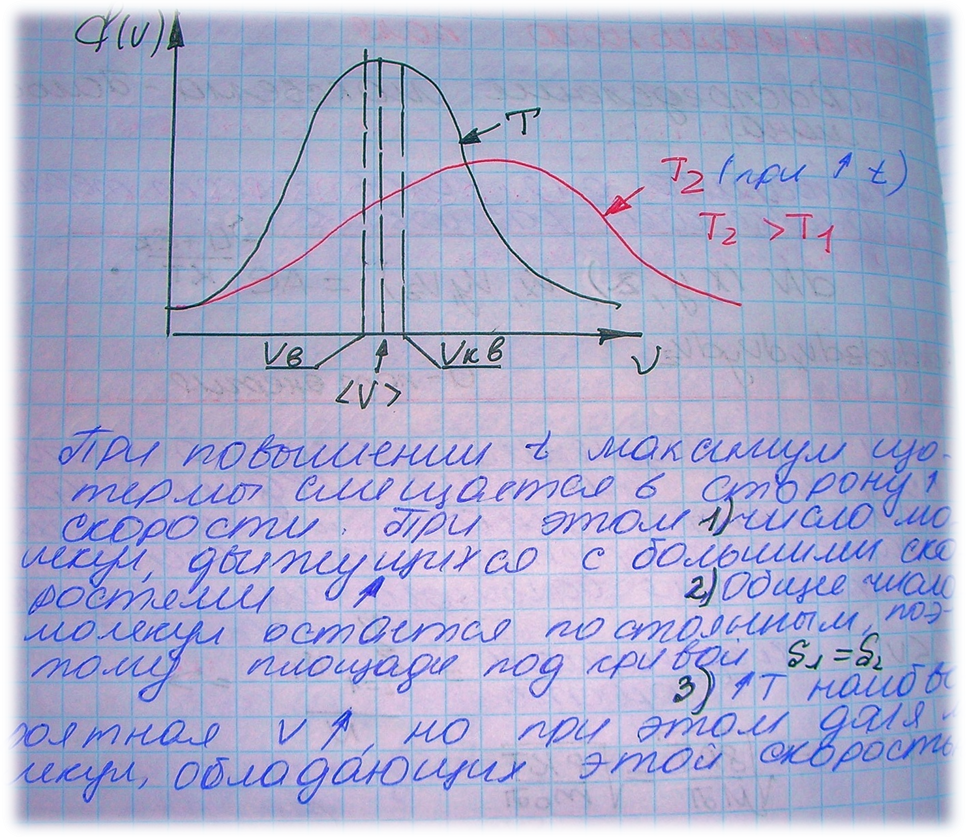 f(v)
T
T2 (при ↑ t)
T2 > T1
Vв
<V>
Vкв
V
При повышении t максимум изо-
термы смещается в сторону ↑
скорости. При этом 1) число мо
лекул, движущихся с большими ско
ростями ↑ 2) Общее число
молекул остается постоянным, поэ-
тому площади под кривой S1 = S2
3) ↑ T наибо
роятная v ↑, но при этом доля м
лекул, обладающих этой скорость